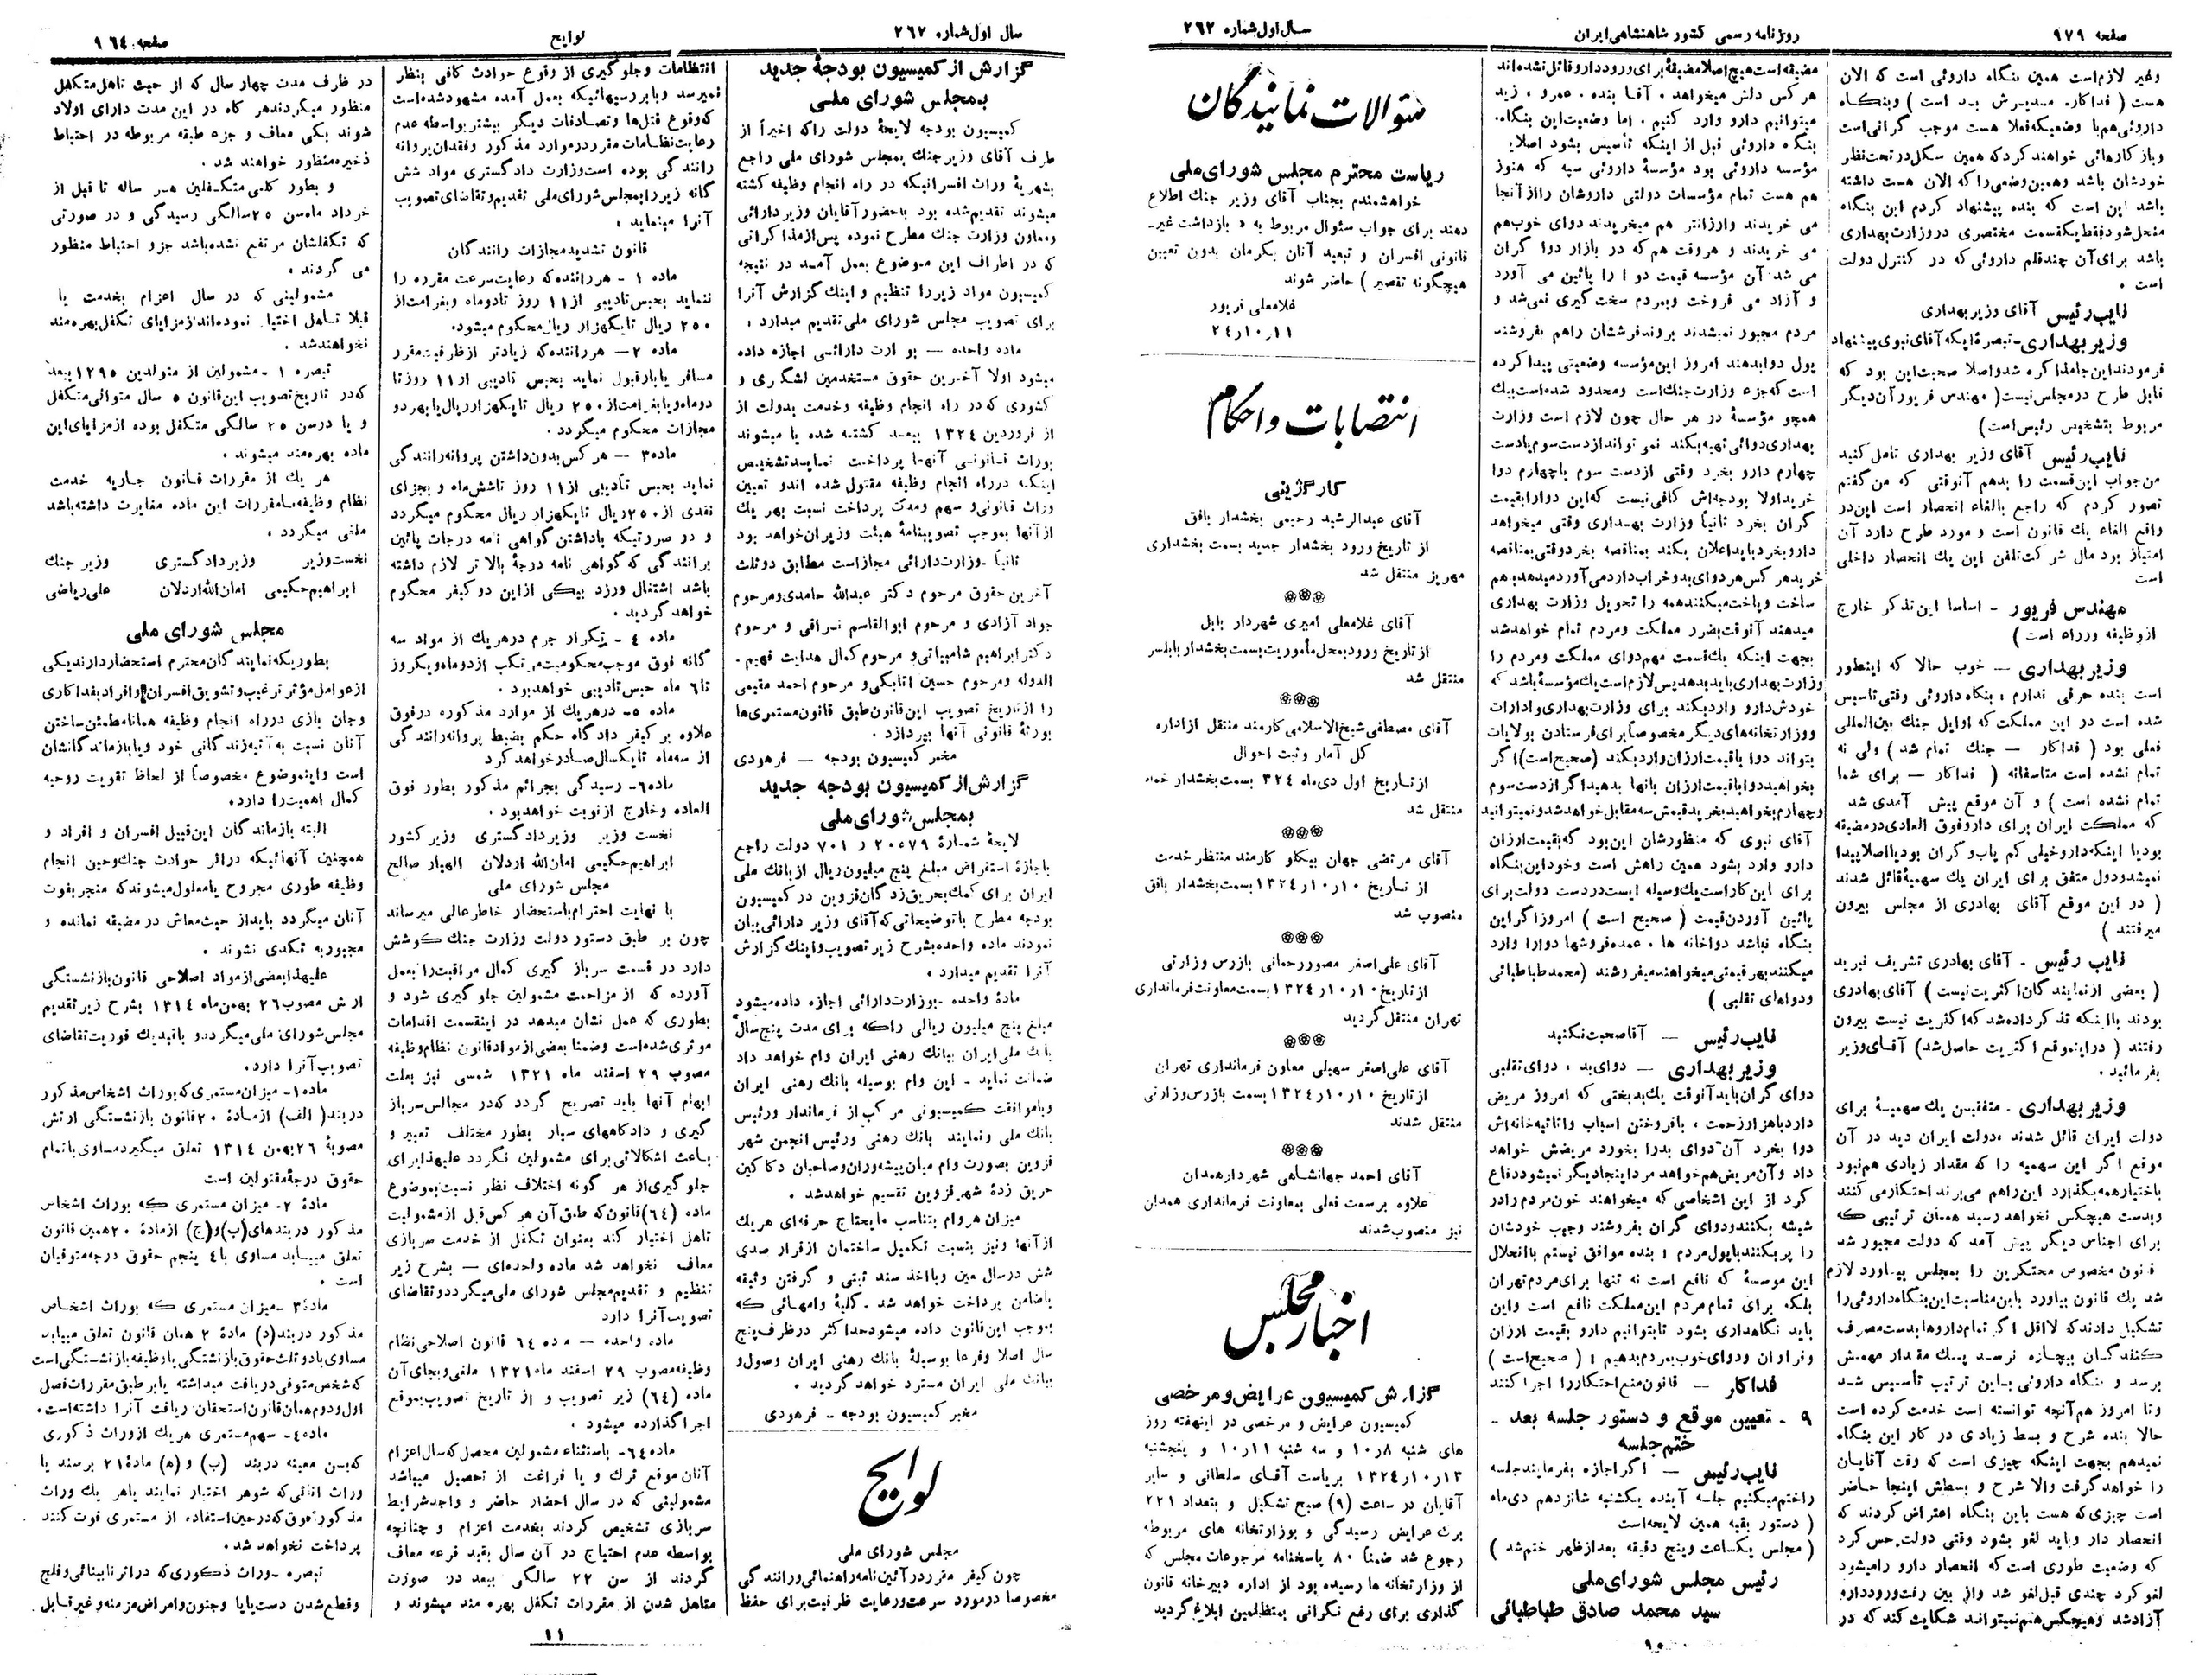 صفحه ۹۷۹
روزنامه رسمی کشور شاهنشاهی ایران
سال اول شماره ۲۶۲
ولیر لازم است همین بنگاه داروئی است که الان
هست ( فداکار. مدیرش بد است ) وبنگاه
داروئی هم با وضعیکه فعلا هست موجب گرانی است
وباز کارهائی خواهند کرد که همین سکل در تحت نظر
خودشان باشد وهمین وضعی را که الان هست داشته
باشد این است که بنده پیشنهاد کردم این بنگاه
منحل شود فقط یکقسمت مختصری در وزارت بهداری
باشد برای آن چند قلم داروئی که در کنترل دولت
است .
نایب رئیس آقای وزیر بهداری
وزیر بهداری-تبصره ایکه آقای نبوی پیشنهاد
فرمودند این جا مذاکره شد و اصلا صحبت این بود که
قابل طرح در مجلس نیست( مهندس فریور آن دیگر
مربوط بتشخیص رئیس است)
نایب رئیس آقای وزیر بهداری تامل کنید
من جواب این قسمت را بدهم آنوقتی که من گفتم
تصور کردم که راجع بالغاء انحصار است این در
واقع الغاء یك قانون است و مورد طرح دارد آن
امتیاز بود مال شرکت تلفن این یك انحصار داخلی
است
مهندس فریور - اساسا این تذکر خارج
از وظیفه وزراء است )
وزیر بهداری — خوب حالا که اینطور
است بنده حرفی ندارم ، بنگاه داروئی وقتی تاسیس
شده است در این مملکت که اوایل جنك بین‌المللی
فعلی بود ( فداکار — جنك تمام شد ) ولی نه
تمام نشده است متاسفانه ( فداکار — برای شما
تمام نشده است ) و آن موقع پیش آمدی شد
که مملکت ایران برای دارو فوق العادی در مضیقه
بود با اینکه دارو خیلی کم یاب و گران بود یا اصلا پیدا
نمیشد و دول متفق برای ایران یك سهمیهٔ قائل شدند
( در این موقع آقای بهادری از مجلس بیرون
میرفتند )
نایب رئیس . آقای بهادری تشریف نبرید
( بعضی از نمایندگان اکثریت نیست ) آقای بهادری
بودند با اینکه تذکر داده شد که اکثریت نیست بیرون
رفتند ( در این موقع اکثریت حاصل شد) آقای وزیر
بفرمائید .
وزیر بهداری . متفقین یك سهمیهٔ برای
دولت ایران قائل شدند ،دولت ایران دید در آن
موقع اگر این سهمیه را که مقدار زیادی هم نبود
باختیار همه بگذارد این را هم می‌برند احتکار می کنند
وبدست هیچکس نخواهد رسید همان ترتیبی که
برای اجناس دیگر پیش آمد که دولت مجبور شد
قانون مخصوص محتکرین را بمجلس بیاورد لازم
شد یك قانون بیاورد باین مناسبت این بنگاه داروئی را
تشکیل دادند که لااقل اگر تمام داروها بدست مصرف
کنندگان بیچاره نرسد یك مقدار مهمش
برسد و بنگاه داروئی باین ترتیب تأسیس شد
وتا امروز هم آنچه توانسته است خدمت کرده است
حالا بنده شرح و بسط زیادی در کار این بنگاه
نمیدهم بجهت اینکه چیزی است که وقت آقایان
را خواهد گرفت والا شرح و بسطش اینجا حاضر
است چیزی که هست باین بنگاه اعتراض کردند که
انحصار دار وباید لغو بشود وقتی دولت حس کرد
که وضعیت طوری است که انحصار دارو رامیشود
لغو کرد چندی قبل لغو شد واز بین رفت و ورود دارو
آزاد شد وهیچکس هم نمیتواند شکایت کند که در
مضیقه است هیچ اصلا مضیقهٔ برای ورود دارو قائل نشده‌اند
هر کس دلش میخواهد ، آقا بنده ، عمرو ، زید
میتوانیم دارو وارد کنیم . اما وضعیت این بنگاه.
بنگاه داروئی قبل از اینکه تأسیس بشود اصلا یك
مؤسسه داروئی بود مؤسسهٔ داروئی سپه که هنوز
هم هست تمام مؤسسات دولتی داروشان را از آنجا
می خریدند وارزانتر هم میخریدند دوای خوب هم
می خریدند و هروقت هم که در بازار دوا گران
می شد آن مؤسسه قیمت دوا را پائین می آورد
و آزاد می فروخت وبمردم سخت گیری نمی‌شد و
مردم مجبور نمیشدند بروند فرششان راهم بفروشند
پول دوا بدهند امروز این مؤسسه وضعیتی پیدا کرده
است که جزء وزارت جنك است ومحدود شده است بیك
همچو مؤسسهٔ در هر حال چون لازم است وزارت
بهداری دوائی تهیه بکند نمی تواند از دست سوم یا دست
چهارم دارو بخرد وقتی از دست سوم یا چهارم دوا
خرید اولا بودجه‌اش کافی نیست که این دوا را بقیمت
گران بخرد ثانیاً وزارت بهداری وقتی میخواهد
دارو بخرد باید اعلان بکند بمناقصه بخرد وقتی بمناقصه
خرید هر کس هر دوای بد و خراب دارد می آورد میدهد بهم
ساخت و پاخت میکنند همه را تحویل وزارت بهداری
میدهند آنوقت بضرر مملکت و مردم تمام خواهد شد
بجهت اینکه یك قسمت مهم دوای مملکت و مردم را
وزارت بهداری باید بدهد پس لازم است یك مؤسسهٔ باشد که
خودش دارو وارد بکند برای وزارت بهداری و ادارات
ووزارتخانه‌های دیگر مخصوصاً برای فرستادن بولایات
بتواند دوا با قیمت ارزان وارد بکند (صحیح است) اگر
بخواهید دوا با قیمت ارزان بانها بدهید اگر از دست سوم
وچهارم بخواهید بخرید قیمتش سه مقابل خواهد شد و نمیتوانید
آقای نبوی که منظورشان این بود که بقیمت ارزان
دارو وارد بشود همین راهش است وخود این بنگاه
برای این کار است یك وسیله ایست در دست دولت برای
پائین آوردن قیمت ( صحیح است ) امروز اگر این
بنگاه نباشد دواخانه ها ، عمده فروشها دوارا وارد
میکنند بهر قیمتی میخواهند میفروشند (محمد طباطبائی
ودواهای تقلبی )
نایب رئیس — آقا صحبت نکنید
وزیر بهداری — دوای بد ، دوای تقلبی
دوای گران باید آنوقت یك بدبختی که امروز مریض
دارد با هزار زحمت ، با فروختن اسباب واثاثیه خانه‌اش
دوا بخرد آن دوای بدرا بخورد مریضش خواهد
داد و آن مریض هم خواهد مرد اینجا دیگر نمیشود دفاع
کرد از این اشخاصی که میخواهند خون مردم را در
شیشه بکنند و دوای گران بفروشند وجیب خودشان
را پر بکنند با پول مردم ، بنده موافق نیستم با انحلال
این موسسهٔ که نافع است نه تنها برای مردم تهران
بلکه برای تمام مردم این مملکت نافع است واین
باید نگاهداری بشود تا بتوانیم دارو بقیمت ارزان
وفراوان و دوای خوب بمردم بدهیم ؛ ( صحیح است )
فداکار — قانون منع احتکار را اجرا کنند
۹ - تعیین موقع و دستور جلسه بعد -
ختم جلسه
نایب رئیس — اگر اجازه بفرمایند جلسه
را ختم میکنیم جلسه آینده یکشنبه شانزدهم دی ماه
( دستور بقیه همین لایحه است
( مجلس یکساعت و پنج دقیقه بعد از ظهر ختم شد )
رئیس مجلس شورای ملی
سید محمد صادق طباطبائی
سئوالات نمایندگان
ریاست محترم مجلس شورای ملی
خواهشمندم بجناب آقای وزیر جنك اطلاع
دهند برای جواب سئوال مربوط به « بازداشت غیر-
قانونی افسران و تبعید آنان بکرمان بدون تعیین
هیچگونه تقصیر ) حاضر شوند
غلامعلی فریور
۲۴ر۱۰ر۱۱
انتصابات و احکام
کارگزینی
آقای عبدالرشید رحیمی بخشدار بافق
از تاریخ ورود بخشدار جدید بسمت بخشداری
مهریز منتقل شد
آقای غلامعلی امیری شهردار بابل
از تاریخ ورود بمحل مأموریت بسمت بخشدار بابلسر
منتقل شد
آقای مصطفی شیخ الاسلامی کارمند منتقل از اداره
کل آمار وثبت احوال
از تاریخ اول دی ماه ۳۲۴ بسمت بخشدار
منتقل شد
آقای مرتضی جهان بیکلو کارمند منتظر خدمت
از تاریخ ۱۰ر۱۰ر۱۳۲۴ بسمت بخشدار بافق
منصوب شد
آقای علی اصغر مصور رحمانی بازرس وزارتی
از تاریخ ۱۰ر۱۰ر۱۳۲۴ بسمت معاونت فرمانداری
تهران منتقل گردید
آقای علی اصغر سهیلی معاون فرمانداری تهران
از تاریخ ۱۰ر۱۰ر۱۳۲۴ بسمت بازرس وزارتی
منتقل شدند
آقای احمد جهانشاهی شهردار همدان
علاوه بر سمت فعلی بمعاونت فرمانداری همدان
نیز منصوب شدند
اخبار مجلس
گزارش کمیسیون عرایض و مرخصی
کمیسیون عرایض و مرخصی در اینهفته روز
های شنبه ۸ر۱۰ و سه شنبه ۱۱ر۱۰ و پنجشنبه
۱۳ر۱۰ر۱۳۲۴ بریاست آقای سلطانی و سایر
آقایان در ساعت (۹) صبح تشکیل و بتعداد ۲۲۱
برك عرایض رسیدگی و بوزارتخانه های مربوطه
رجوع شد ضمناً ۸۰ پاسخنامه مرجوعات مجلس که
از وزارتخانه ها رسیده بود از اداره دبیرخانه قانون
گذاری برای رفع نگرانی بمتظلمین ابلاغ گردید
۱۰
سال اول شماره ۲۶۲
لوایح
صفحه ۹۶۴
گزارش از کمیسیون بودجهٔ جدید
بمجلس شورای ملی
کمیسیون بودجه لایحهٔ دولت راکه اخیراً از
طرف آقای وزیر جنك بمجلس شورای ملی راجع
بشهریهٔ وراث افسرانیکه در راه انجام وظیفه کشته
میشوند تقدیم شده بود با حضور آقایان وزیر دارائی
ومعاون وزارت جنك مطرح نموده پس از مذاکراتی
که در اطراف این موضوع بعمل آمد در نتیجه
کمیسیون مواد زیر را تنظیم و اینك گزارش آنرا
برای تصویب مجلس شورای ملی تقدیم میدارد ،
ماده واحده — بوزارت دارائی اجازه داده
میشود اولا آخرین حقوق مستخدمین لشگری و
کشوری که در راه انجام وظیفه وخدمت بدولت از
از فروردین ۱۳۲۴ ببعد کشته شده یا میشوند
بوراث قانونی آنها پرداخت نماید تشخیص
اینکه در راه انجام وظیفه مقتول شده اند و تعیین
وراث قانونی و سهم ومدت پرداخت نسبت بهر یك
از آنها بموجب تصویبنامهٔ هیئت وزیران خواهد بود
ثانیاً -وزارت دارائی مجاز است مطابق دو ثلث
آخرین حقوق مرحوم دکتر عبدالله حامدی و مرحوم
جواد آزادی و مرحوم ابوالقاسم نراقی و مرحوم
دکتر ابراهیم شامبیاتی و مرحوم کمال هدایت فهیم-
الدوله و مرحوم حسین اتابکی و مرحوم احمد مقیمی
را از تاریخ تصویب این قانون طبق قانون مستمری‌ها
بورثهٔ قانونی آنها بپردازد .
مخبر کمیسیون بودجه — فرهودی
گزارش از کمیسیون بودجه جدید
بمجلس شورای ملی
لایحهٔ شمارهٔ ۲۰۵۷۹ ر ۷۰۱ دولت راجع
باجازهٔ استقراض مبلغ پنج میلیون ریال از بانك ملی
ایران برای کمك بحریق زدگان قزوین در کمیسیون
بودجه مطرح با توضیحاتی که آقای وزیر دارائی بیان
نمودند ماده واحده بشرح زیر تصویب و اینك گزارش
آنرا تقدیم میدارد ،
مادهٔ واحده -بوزارت دارائی اجازه داده میشود
مبلغ پنج میلیون ریالی راکه برای مدت پنج سال
بانك ملی ایران ببانك رهنی ایران وام خواهد داد
ضمانت نماید - این وام بوسیله بانك رهنی ایران
وباموافقت کمیسیونی مرکب از فرماندار ورئیس
بانك ملی ونماینده بانك رهنی ورئیس انجمن شهر
قزوین بصورت وام میان پیشه‌وران وصاحبان دکاکین
حریق زدهٔ شهر قزوین تقسیم خواهد شد .
میزان هر وام بتناسب مایحتاج حرفه‌ای هر یك
از آنها ونیز بنسبت تکمیل ساختمان از قرار صدی
شش در سال معین وبا اخذ سند ثبتی و گرفتن وثیقه
یا ضامن پرداخت خواهد شد . کلیهٔ وامهائی که
بموجب این قانون داده میشود حداکثر در ظرف پنج
سال اصلا وفرعا بوسیلهٔ بانك رهنی ایران وصول و
ببانك ملی ایران مسترد خواهد گردید .
مخبر کمیسیون بودجه - فرهودی
لوایح
مجلس شورای ملی
چون کیفر مقرر در آئین نامه راهنمائی ورانندگی
مخصوصا در مورد سرعت و رعایت ظرفیت برای حفظ
انتظامات وجلوگیری از وقوع حوادث کافی بنظر
نمیرسد وبا بررسیهائیکه بعمل آمده مشهود شده است
که وقوع قتل‌ها وتصادفات دیگر بیشتر بواسطه عدم
رعایت نظامات مقرر در موارد مذکور وفقدان پروانه
رانندگی بوده است وزارت دادگستری مواد شش
گانه زیر را بمجلس شورای ملی تقدیم و تقاضای تصویب
آنرا مینماید ،
قانون تشدید مجازات رانندگان
ماده ۱ - هر راننده که رعایت سرعت مقرره را
ننماید بحبس تادیبی از ۱۱ روز تا دو ماه وبغرامت از
۲۵۰ ریال تا یکهزار ریال محکوم میشود.
ماده ۲— هر راننده که زیادتر از ظرفیت مقرر
مسافر یا بار قبول نماید بحبس تادیبی از ۱۱ روز تا
دوماه و یا بغرامت از ۲۵۰ ریال تا یکهزار ریال یا بهر دو
مجازات محکوم میگردد .
ماده ۳ — هر کس بدون داشتن پروانه رانندگی
نماید بحبس تأدیبی از ۱۱ روز تا شش ماه و بجزای
نقدی از ۲۵۰ ریال تا یکهزار ریال محکوم میگردد
و در صورتیکه باداشتن گواهی نامه درجات پائین
برانندگی که گواهی نامه درجهٔ بالا تر لازم داشته
باشد اشتغال ورزد بیکی از این دو کیفر محکوم
خواهد گردید .
ماده ٤ - تکرار جرم در هر یك از مواد سه
گانه فوق موجب محکومیت مرتکب از دو ماه و یکروز
تا ٦ ماه حبس تادیبی خواهد بود .
ماده ۵- در هر یك از موارد مذکوره در فوق
علاوه بر کیفر دادگاه حکم بضبط پروانه رانندگی
از سه ماه تا یکسال صادر خواهد کرد
ماده ٦- رسیدگی بجرائم مذکور بطور فوق
العاده وخارج از نوبت خواهد بود.
نخست وزیر وزیر دادگستری وزیر کشور
ابراهیم حکیمی امان الله اردلان الهیار صالح
مجلس شورای ملی
با نهایت احترام باستحضار خاطر عالی میرساند
چون بر طبق دستور دولت وزارت جنك کوشش
دارد در قسمت سرباز گیری کمال مراقبت را بعمل
آورده که از مزاحمت مشمولین جلوگیری شود و
بطوری که عمل نشان میدهد در اینقسمت اقدامات
موثری شده است وضمنا بعضی از مواد قانون نظام وظیفه
مصوب ۲۹ اسفند ماه ۱۳۲۱ شمسی نیز بعلت
ابهام آنها باید تصریح گردد که در مجالس سرباز
گیری و دادگاههای سیار بطور مختلف تعبیر و
باعث اشکالاتی برای مشمولین نگردد علیهذا برای
جلوگیری از هر گونه اختلاف نظر نسبت بموضوع
ماده (٦٤) قانون که طبق آن هر کس قبل از مشمولیت
تاهل اختیار کند بعنوان تکفل از خدمت سربازی
معاف نخواهد شد ماده واحده‌ای — بشرح زیر
تنظیم و تقدیم مجلس شورای ملی میگردد و تقاضای
تصویب آنرا دارد
ماده واحده — ماده ٦٤ قانون اصلاحی نظام
وظیفه مصوب ۲۹ اسفند ماه ۱۳۲۱ ملغی و بجای آن
ماده (٦٤) زیر تصویب و از تاریخ تصویب بموقع
اجرا گذارده میشود .
ماده ٦٤- باستثناء مشمولین محصل که سال اعزام
آنان موقع ترك و یا فراغت از تحصیل میباشد
مشمولینی که در سال احضار حاضر و واجد شرایط
سربازی تشخیص گردند بخدمت اعزام و چنانچه
بواسطه عدم احتیاج در آن سال بقید قرعه معاف
گردند از سن ۲۲ سالگی ببعد در صورت
متاهل شدن از مقررات تکفل بهره مند میشوند و
در ظرف مدت چهار سال که از حیث تاهل متکفل
منظور میگردند هر گاه در این مدت دارای اولاد
شوند بکلی معاف و جزء طبقه مربوطه در احتیاط
ذخیره منظور خواهند شد .
و بطور کلی متکفلین هر ساله تا قبل از
خرداد ماه سن ۲۵ سالگی رسیدگی و در صورتی
که تکفلشان مرتفع نشده باشد جزو احتیاط منظور
می گردند ،
مشمولینی که در سال اعزام بخدمت یا
قبلا تاهل اختیار نموده‌اند از مزایای تکفل بهره مند
نخواهند شد .
تبصره ۱ -مشمولین از متولدین ۱۲۹۵ ببعد
که در تاریخ تصویب این قانون ۵ سال متوالی متکفل
و یا در سن ۲۵ سالگی متکفل بوده از مزایای این
ماده بهره‌مند میشوند .
هر یك از مقررات قانون جاریه خدمت
نظام وظیفه با مقررات این ماده مغایرت داشته باشد
ملغی میگردد ،
نخست وزیر وزیر دادگستری وزیر جنك
ابراهیم حکیمی امان الله اردلان علی ریاضی
مجلس شورای ملی
بطوریکه نمایندگان محترم استحضار دارند یکی
از عوامل مؤثر ترغیب و تشویق افسران و افراد بفداکاری
وجان بازی در راه انجام وظیفه همانا مطمئن ساختن
آنان نسبت به آتیه زندگانی خود و یا بازماندگانشان
است و اینموضوع مخصوصاً از لحاظ تقویت روحیه
کمال اهمیت را دارد.
البته بازماندگان این قبیل افسران و افراد و
همچنین آنهائیکه در اثر حوادث جنك وحین انجام
وظیفه طوری مجروح یا معلول میشوند که منجر بفوت
آنان میگردد باید از حیث معاش در مضیقه نمانده و
مجبور به تکدی نشوند .
علیهذا بعضی از مواد اصلاحی قانون بازنشستگی
ارتش مصوب ۲۶ بهمن ماه ۱۳۱٤ بشرح زیر تقدیم
مجلس شورای ملی میگردد و با قید یك فوریت تقاضای
تصویب آنرا دارد.
ماده ۱- میزان مستمری که بوراث اشخاص مذکور
در بند ( الف) از مادهٔ ۲۰ قانون بازنشستگی ارتش
مصوبهٔ ۲۶ بهمن ۱۳۱٤ تعلق میگیرد مساوی با تمام
حقوق درجهٔ مقتولین است
مادهٔ ۲. میزان مستمری که بوراث اشخاص
مذکور در بندهای (ب) و (ج) از مادهٔ ۲۰ همین قانون
تعلق مییابد مساوی با ٤ پنجم حقوق درجه متوفیان
است .
مادهٔ ۳ -میزان مستمری که بوراث اشخاص
مذکور در بند (د) مادهٔ ۲ همان قانون تعلق مییابد
مساوی با دو ثلث حقوق بازنشستگی یا وظیفه بازنشستگی است
که شخص متوفی دریافت میداشته یا بر طبق مقررات فصل
اول و دوم همان قانون استحقاق دریافت آنرا داشته است.
ماده ٤- سهم مستمری هر یك از وراث ذکوری
که بسن معینه در بند (ب) و (ه) مادهٔ ۲۱ برسند یا
وراث اناثی که شوهر اختیار نمایند یا هر یك وراث
مذکور فوق که در حین استفاده از مستمری فوت کنند
پرداخت نخواهد شد.
تبصره -وراث ذکوری که در اثر نابینائی و فلج
وقطع شدن دست یا پا وجنون و امراض مزمنه وغیر قابل
۱۱